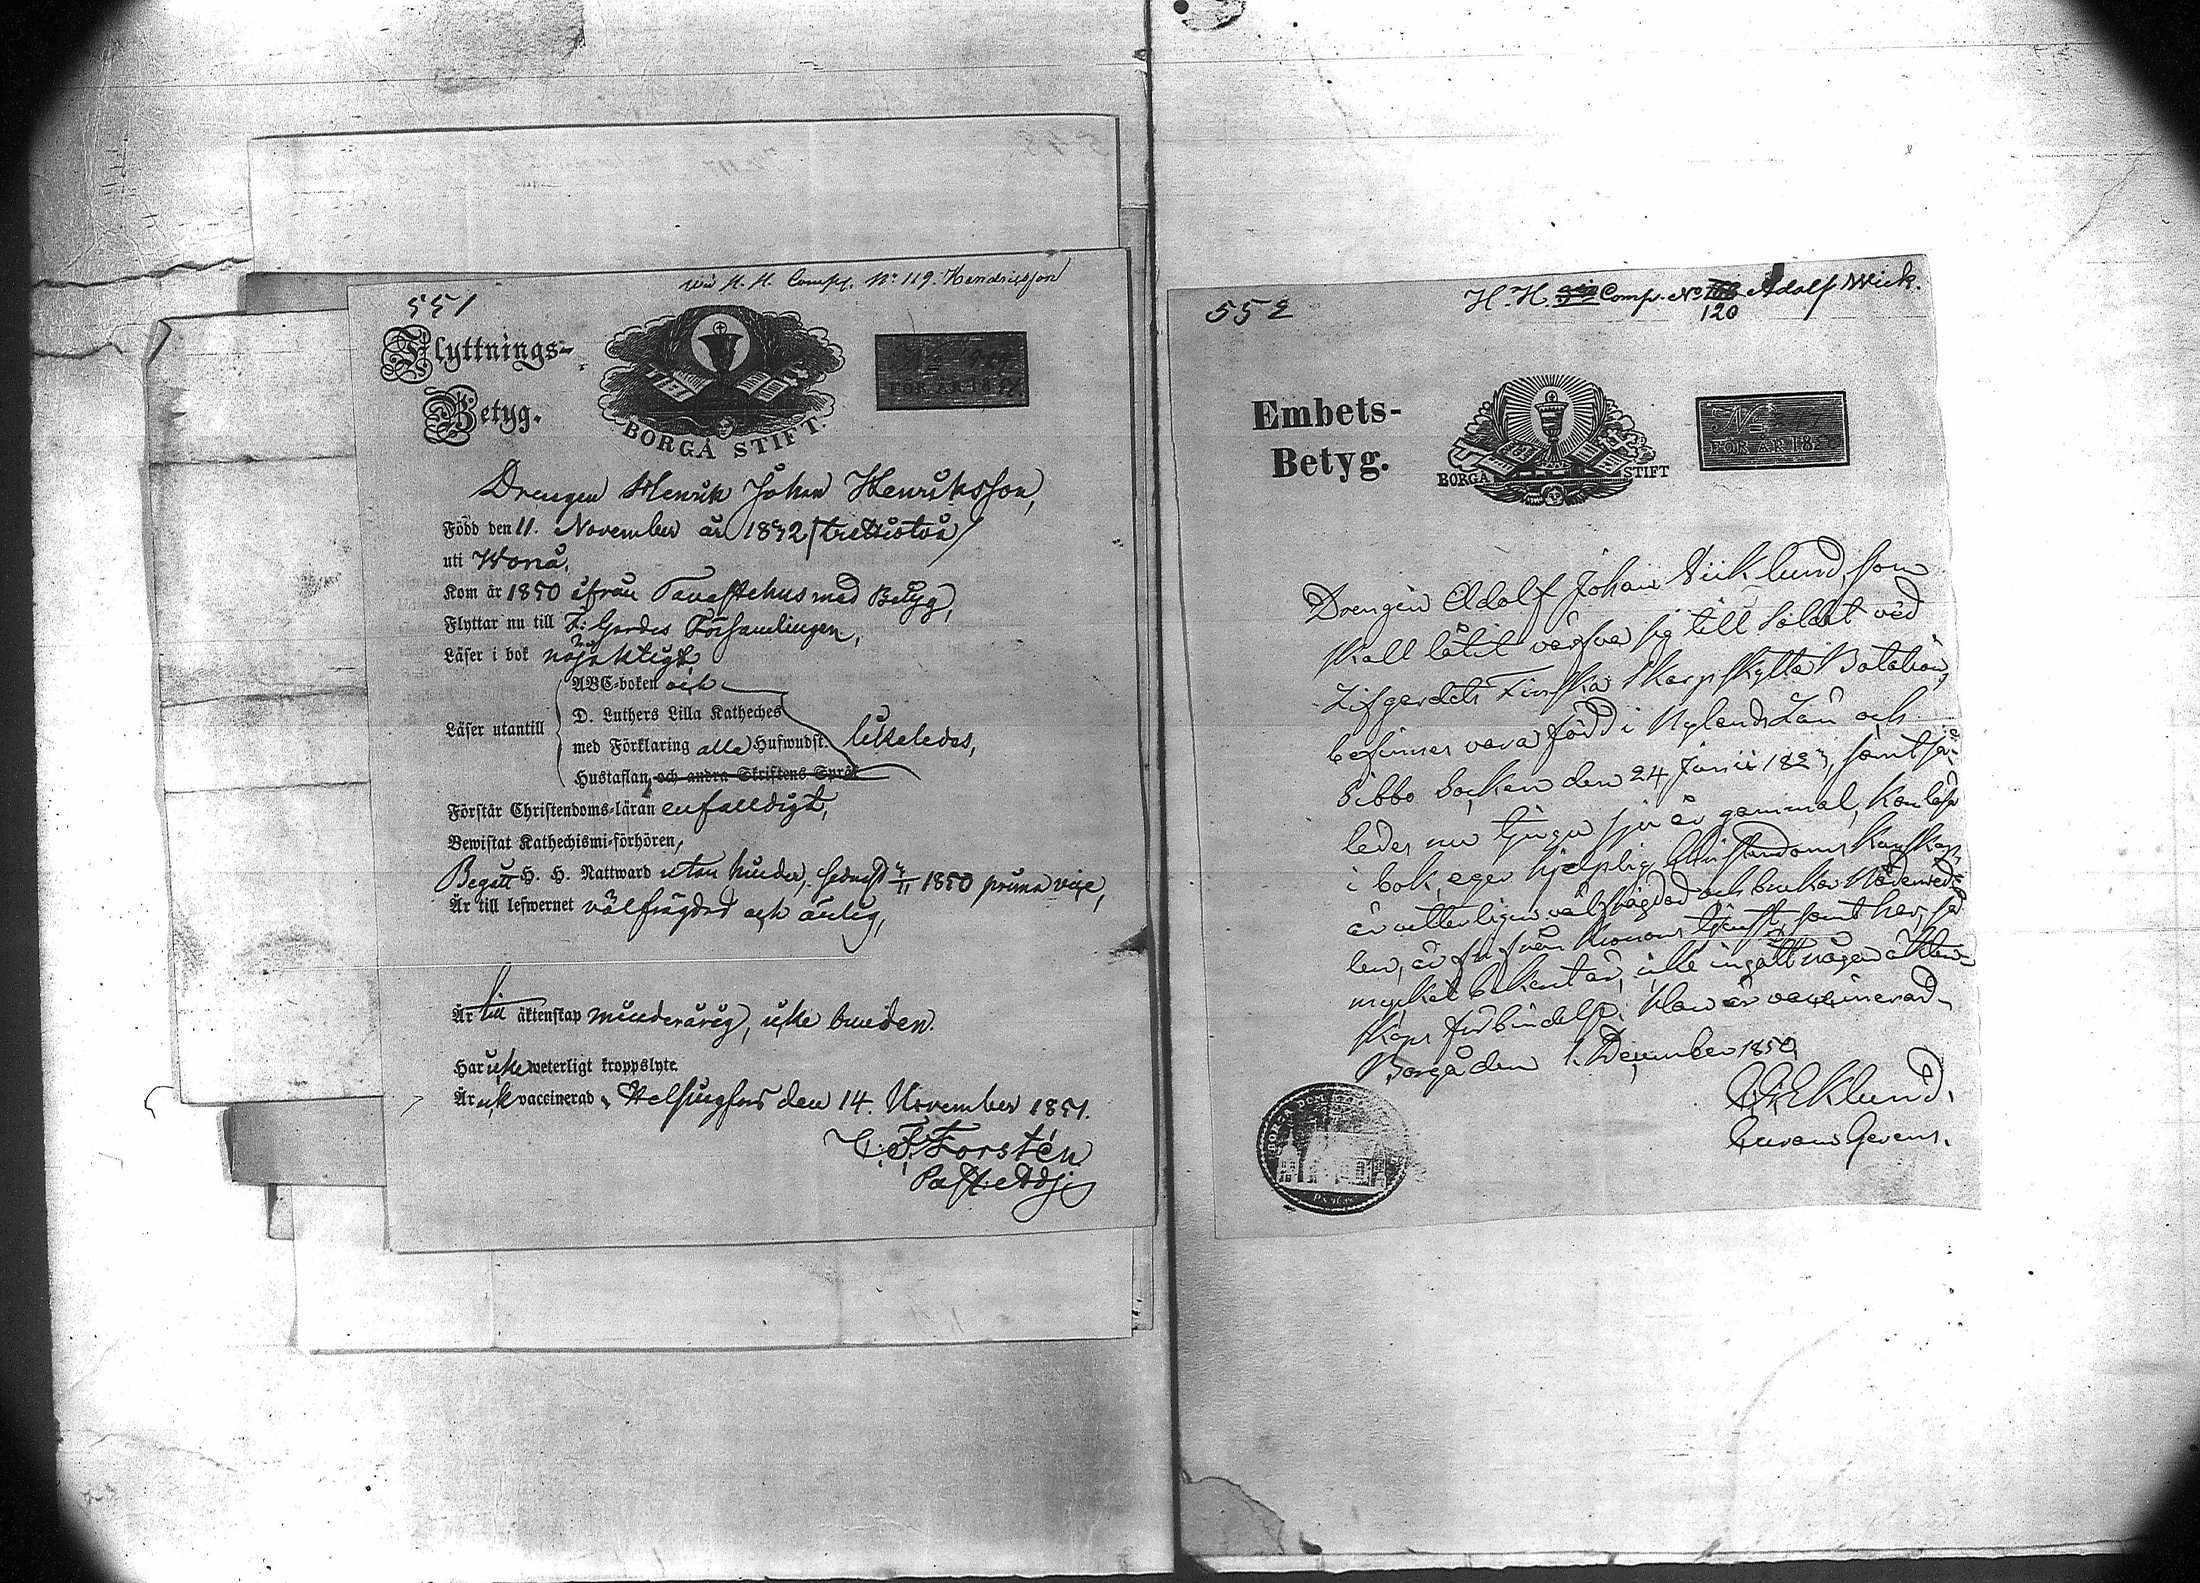 551
wid H. H. Comp. No 119. Hendricsson
Flyttnings-
Betyg.
BORGÅ STIFT.
FÖR ÅR 1851
Drengen Henrik Johan Henriksson,
Född den 11. November år 1832 /trettiotvå/
uti Wonå,
Kom år 1850 ifrån Tavastehus med Betyg,
Flyttar nu till F: Gardes Församlingen,
Läser i bok nöjaktigt,
ABC-boken och
D. Luthers Lilla Katheches
Läser utantill
med Förklaring alla Hufwudst. likaledes,
Hustaflan, och andra Skriftens Språk
Förstår Christendoms-läran enfalldigt,
Bewistat Kathechismi-förhören,
Begått H. H. Nattward utan hinder, sednast 1850 prima vice,
Är till lefwernet välfrägdad och ärlig,
Är till äktenskap minderårig, icke bunden.
Har icke weterligt kroppslyte.
Är ock vaccinerad, Helsingfors den 14. November 1851.
C. F. Forstén
Past: Adj:
552
H. H. Comp. No 120 Adolf Wick.
Embets-
Betyg.
BORGÅ STIFT
No
FÖR ÅR 1850
Drengen Adolf Johan Wiklund, som
skall låtit värfva sig till Soldat vid
Lifgardets Finska Skarpskytte Bataljon,
befinnes vara född i Nylands Län och
Sibbo Socken den 24 Junii 1823, samt så-
ledes nu tjugu sju år gammal, kan läsa
i bok, eger hjelplig Christendoms kunskap,
är vitterligen välfrägdad och brukar Nådemed-
len, är fri från Kronans tjenst, samt har, så
mycket bekant är, icke ingått någon äkten-
skaps förbindelse. Han är vaccinerad.
Borgå den 1. December 1850,
Eklund.
Curam Gerens.